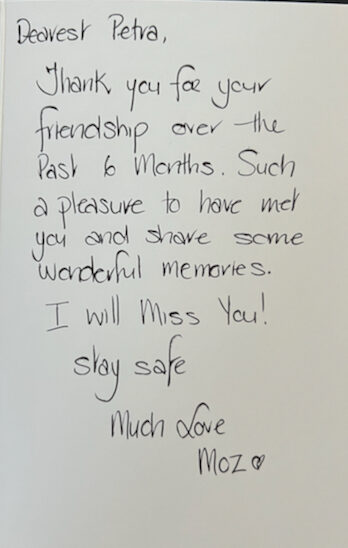 Dearest Petra,
Thank you for your
friendship over the
Past 6 Months. Such
a pleasure to have met
you and share some
wonderful memories.
I will Miss You!
stay safe
Much Love
Moz ♡